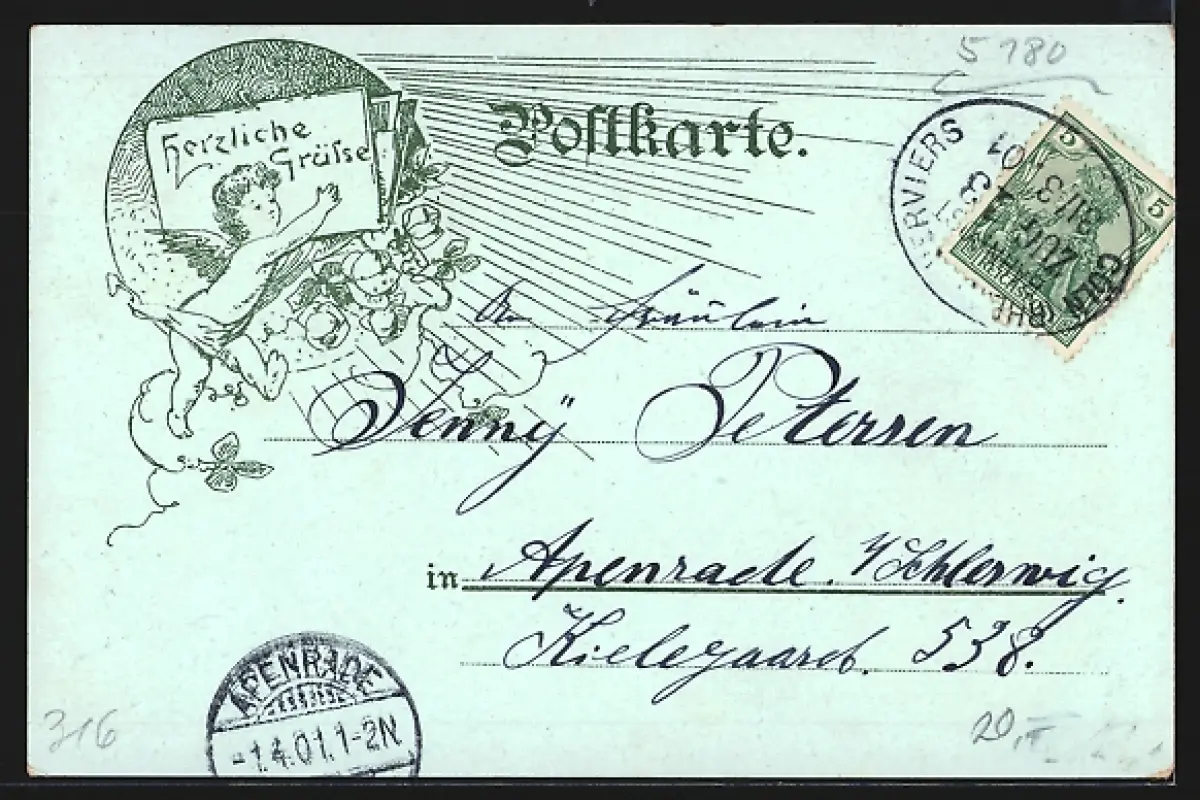 5 180
Herzliche
Grüsse
Postkarte.
VERVIERS
CÖLN
ZUG
31/3
01
5
5
An Fräulein
Jenny Petersen
in Apenrade. i/Schleswig.
538.
APENRADE
-1.4.01.1-2N.
316
20